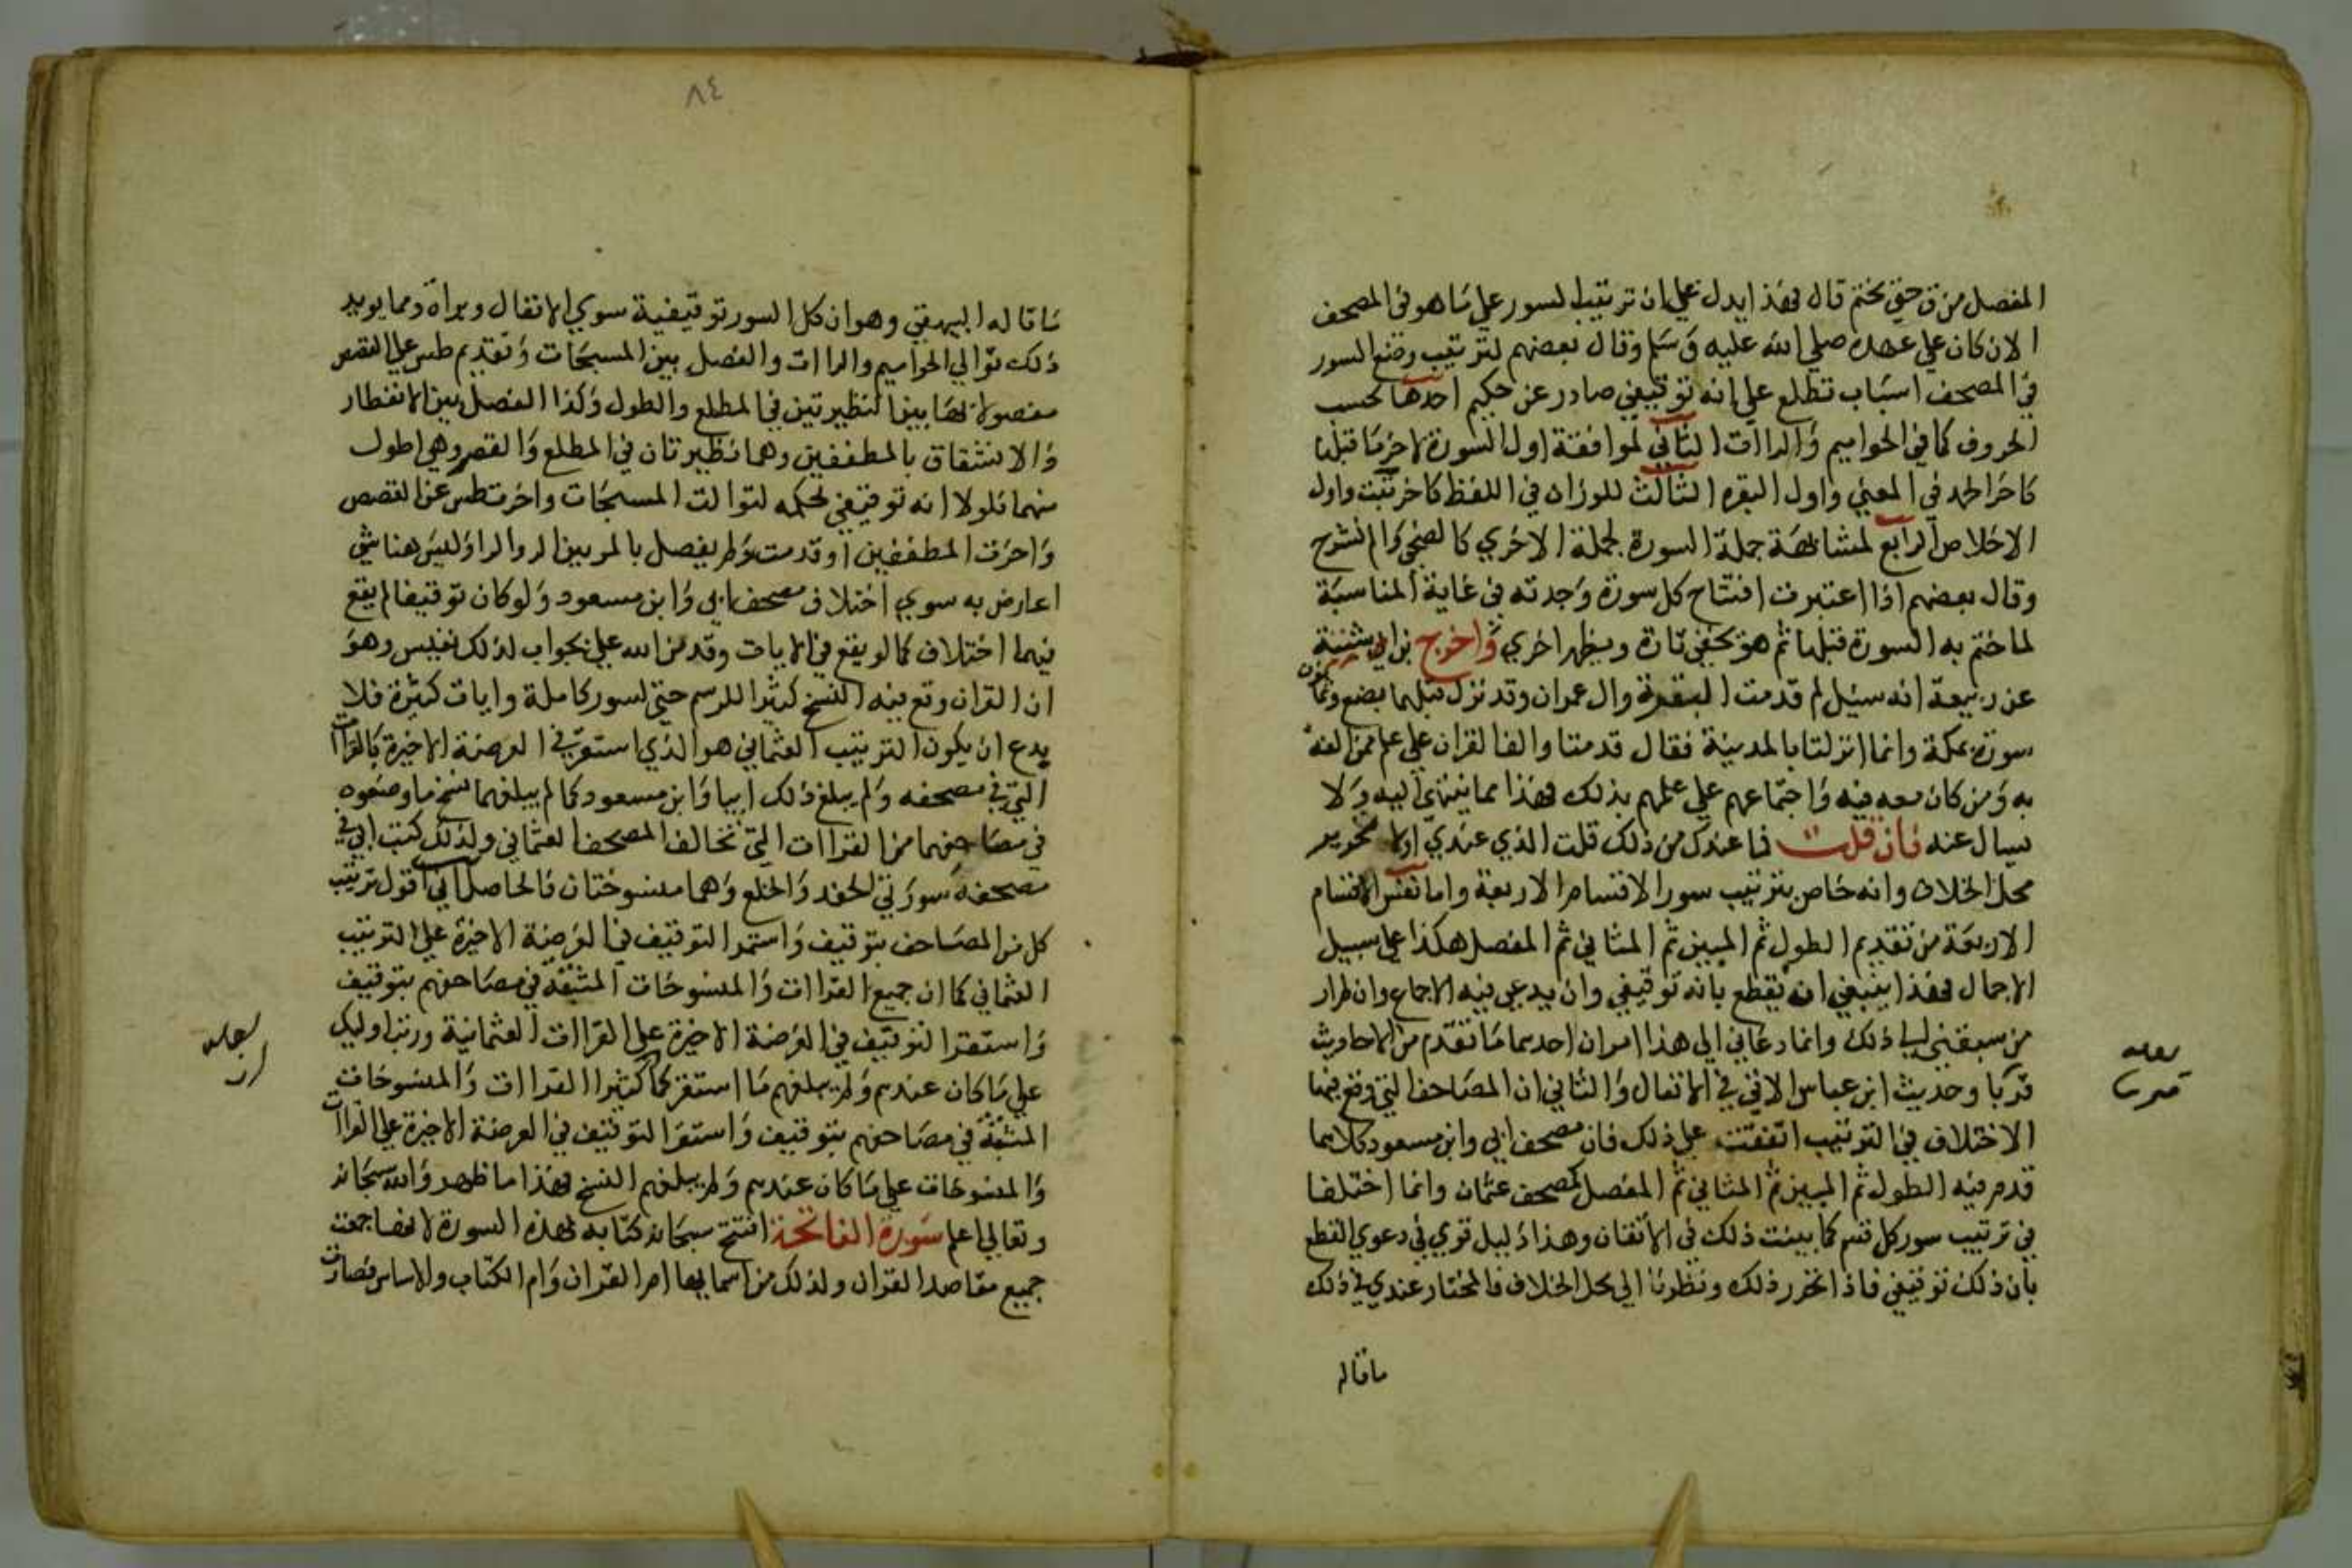 المفصل من ق حتى نختم قال فهذا يدل على ان ترتيب السور على ما هو في المصحف
الان كان على عهده صلى الله عليه وسلم وقال بعضهم لترتيب وضع السور
في المصحف اسباب تطلع على انه توقيفي صادر عن حكيم احدها بحسب
الحروف كما في الحواميم والراات الثاني لموافقة اول السورة لاخر ما قبلها
كاخر الحمد في المعنى واول البقره الثالث للوزان في اللفظ كاخر تبت واول
الاخلاص الرابع لمشابهة جملة السورة لجملة الاخرى كالضحى والم نشرح
وقال بعضهم اذا اعتبرت افتتاح كل سورة وجدته في غاية المناسبة
لما ختم به السورة قبلها ثم هو يخفى تارة ويظهر اخرى واخرج بن ابي شيبة
عن ربيعة انه سيل لم قدمت البقرة وال عمران وقد نزل قبلهما بضع وثمانون
سورة بمكة وانما انزلتا بالمدينة فقال قدمتا والف القران على علم ممن الفه
به ومن كان معه فيه واجتماعهم على علمهم بذلك فهذا مما ينتهى اليه ولا
يسال عنه فان قلت فما عندك من ذلك قلت الذي عندي اولا تحرير
محل الخلاف وانه خاص بترتيب سور الاقسام الاربعة واما نفس الاقسام
الاربعة من تقديم الطول ثم الميين ثم المثاني ثم المفصل هكذا على سبيل
الاجمال فهذا ينبغي ان يقطع بانه توقيفي وان يدعى فيه الاجماع وان لم ار
من سبقني الى ذلك وانما دعاني الى هذا امران احدهما ما تقدم من الاحاديث
قربا وحديث ابن عباس الاتي في الانفال والثاني ان المصاحف التي وقع فيها
الاختلاف في الترتيب اتفقت على ذلك فان مصحف ابي وابن مسعود كلاهما
قدم فيه الطول ثم الميين ثم المثاني ثم المفصل كمصحف عثمان وانما اختلفا
في ترتيب سور كل قسم كما بينت ذلك في الاتقان وهذا دليل قوي في دعوى القطع
بان ذلك توقيفي فاذا تحرر ذلك ونظرنا الى محل الخلاف فالمختار عندي في ذلك
ماقاله
٨٤
ما قاله البيهقي وهو ان كل السور توقيفية سوى الانفال وبراة ومما يويد
ذلك توالي الحواميم والراات والفصل بين المسبحات وتقديم طس على القصص
مفصولا بها بين النظيرتين في المطلع والطول وكذا الفصل بين الانفطار
والانشقاق بالمطففين وهما نظيرتان في المطلع والقصر وهي اطول
منهما فلولا انه توقيفي لحكمه لتوالت المسبحات واخرت طس عن القصص
واخرت المطففين او قدمت ولم يفصل بالمر بين الر والر وليس هنا شي
اعارض به سوى اختلاف مصحف ابي وابن مسعود ولو كان توقيفا لم يقع
فيهما اختلاف كما لو يقع في الايات وقد من الله على بجواب لذلك نفيس وهو
ان القران وقع فيه النسخ كثيرا للرسم حتى لسور كاملة وايات كثيرة فلا
يدع ان يكون الترتيب العثماني هو الذي استقر في العرضة الاخيرة كالقراات
التي في مصحفه ولم يبلغ ذلك ابيا وابن مسعود كما لم يبلغهما نسخ ما وضعوه
في مصاحفهما من القراات التي تخالف المصحف العثماني ولذلك كتب ابي في
مصحفه سورتي الحفد والخلع وهما منسوختان فالحاصل اني اقول ترتيب
كل من المصاحف بتوقيف واستمر التوقيف في العرضة الاخيرة على الترتيب
العثماني كما ان جميع القراات والمنسوخات المثبتة في مصاحفهم بتوقيف
واستقر التوقيف في العرضة الاخيرة على القراات العثمانية ورتب اوليك
على ما كان عندهم ولم يبلغهم ما استقر كما كثيرا القراات والمنسوخات
المثبتة في مصاحفهم بتوقيف واستقر التوقيف في العرضة الاخيرة على القراات
والمنسوخات على ما كان عندهم ولم يبلغهم النسخ فهذا ما ظهر والله سبحانه
وتعالى اعلم سورة الفاتحة افتتح سبحانه كتابه بهذه السورة لانها جمعت
جميع مقاصد القران ولذلك من اسمايها ام القران وام الكتاب والاساس فصارت